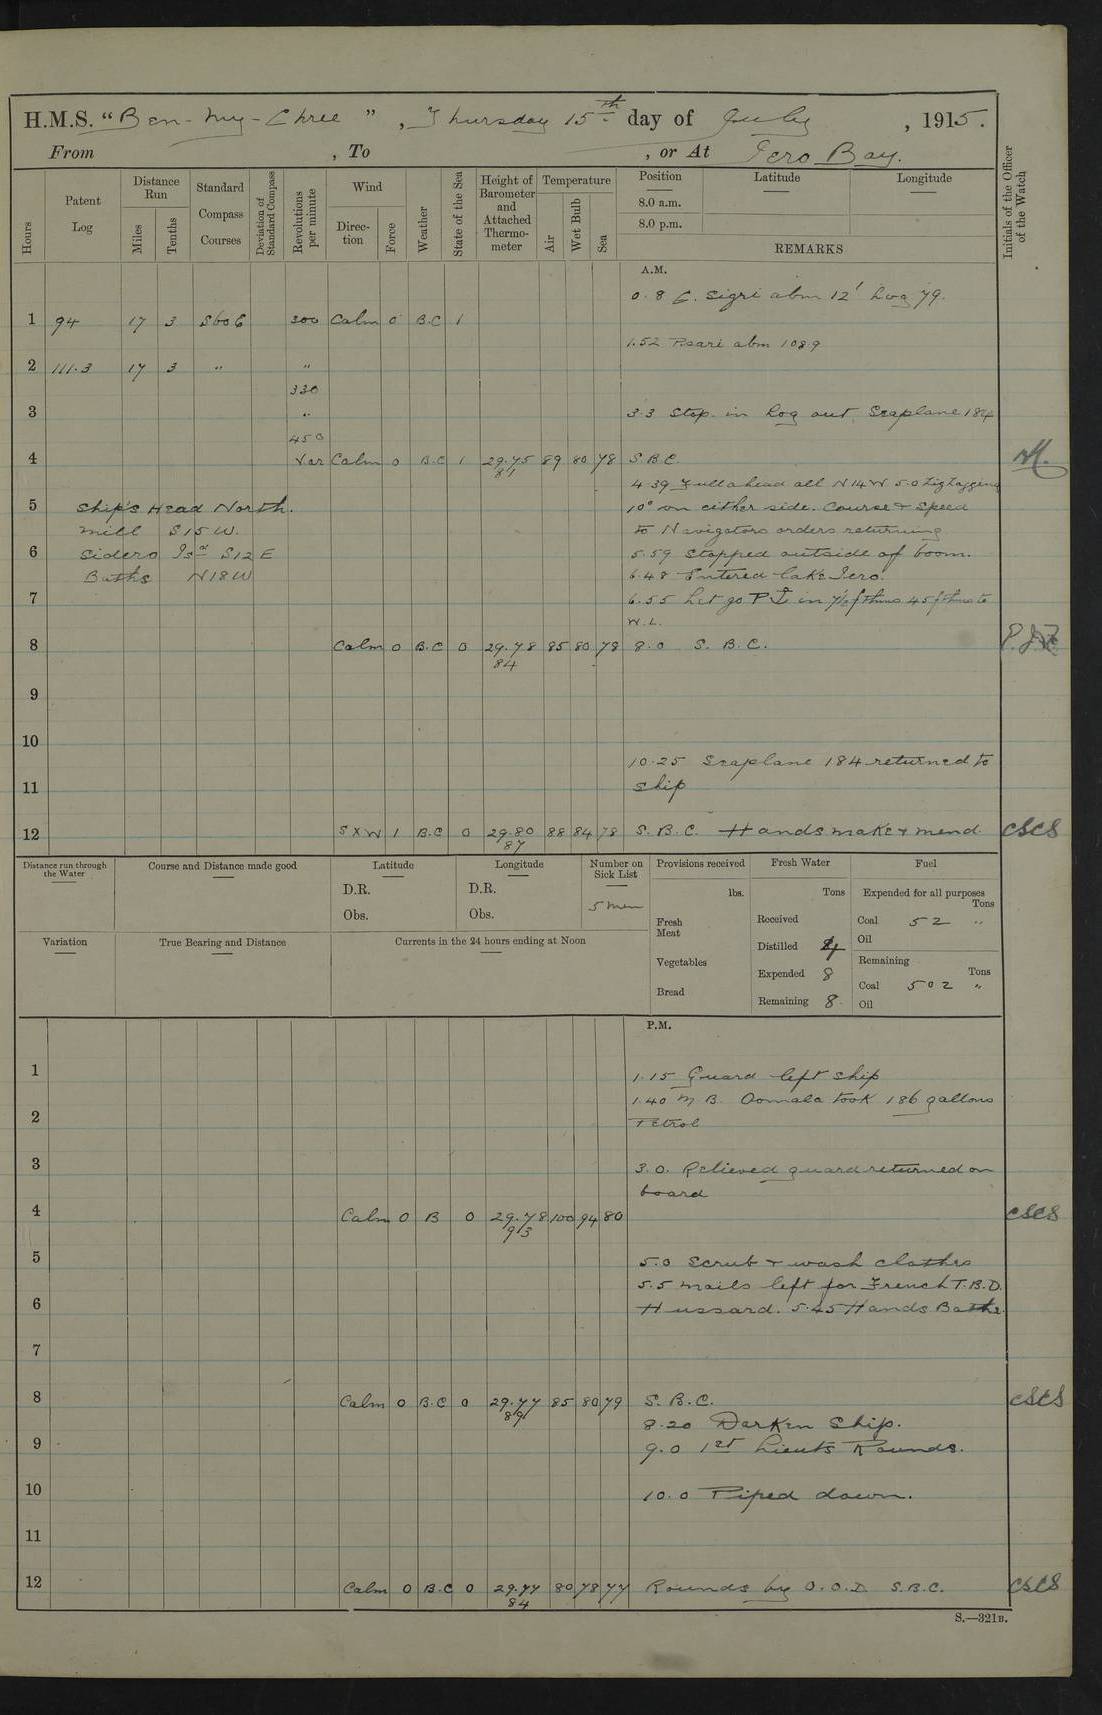 H.M.S. "Ben-my-Chree", Thursday 15th day of July, 1915.
From , To , or At Iero Bay.
Hours
Patent Log
Distance Run
Miles
Tenths
Standard Compass Courses
Deviation of Standard Compass
Revolutions per minute
Wind
Direction
Force
Weather
State of the Sea
Height of Barometer and Attached Thermometer
Temperature
Air
Wet Bulb
Sea
Position
8.0 a.m.
8.0 p.m.
Latitude
Longitude
REMARKS
Initials of the Officer of the Watch
A.M.
0.8 C. Sigri abm 12' Log 79.
1 94 17 3 S60E 300 Calm 0 B.C 1
1.52 Psari abm 108.9
2 111.3 17 3 " "
330
3 " 3.3 Stop. in Log out. Seaplane 184
450
4 Var Calm 0 B.C 1 29.75 89 80 78 S.B.C.
81
4.39 Full ahead all N14W 5.0 Zigzagging
5 Ship's Head North. 10° on either side. Course & Speed
Mill S15W. to Navigators orders returning
6 Sidero Isd S12E 5.59 Stopped outside of boom.
Baths N18W 6.48 Entered Lake Iero.
7 6.55 Let go P in 7½ fthms 45 fthms to
W.L.
8 Calm 0 B.C 0 29.78 85 80 78 8.0 S.B.C.
84
9
10
10.25 Seaplane 184 returned to
11 ship
12 SXW 1 B.C 0 29.80 88 84 78 S.B.C. Hands make & mend. CSCS
87
Distance run through the Water
Course and Distance made good
Latitude
D.R.
Obs.
Longitude
D.R.
Obs.
Number on Sick List
5 men
Provisions received
lbs.
Fresh Meat
Vegetables
Bread
Fresh Water
Tons
Received
Distilled 4
Expended 8
Remaining 8
Fuel
Expended for all purposes
Tons
Coal 52 "
Oil
Remaining
Tons
Coal 502 "
Oil
Variation
True Bearing and Distance
Currents in the 24 hours ending at Noon
P.M.
1 1.15 Guard left ship
1.40 M.B. Oomala took 186 gallons
2 Petrol
3 3.0. Relieved guard returned on
board
4 Calm 0 B 0 29.78 100 94 80 CSCS
93
5 5.0 Scrub & wash clothes
5.5 Mails left for French T.B.D.
6 Hussard. 5.45 Hands Bathe.
7
8 Calm 0 B.C 0 29.77 85 80 79 S.B.C. CSCS
89
8.20 Darken Ship.
9 9.0 1st Lieuts Rounds.
10 10.0 Piped down.
11
12 Calm 0 B.C 0 29.77 80 78 77 Rounds by O.O.D S.B.C. CSCS
84
S.—321B.